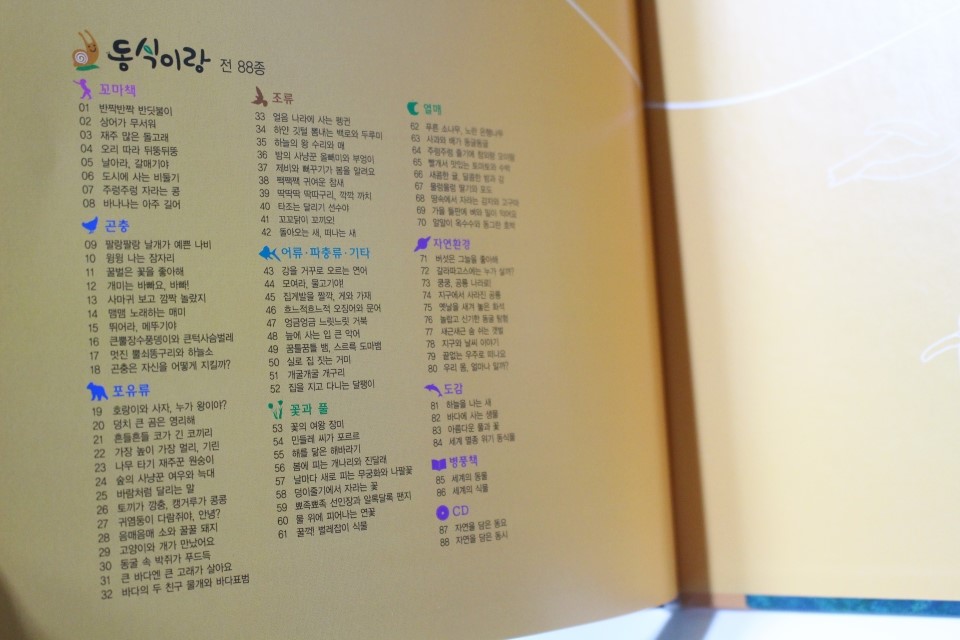 동식이랑 전 88종
꼬마책
01 반짝반짝 반딧불이
02 상어가 무서워
03 재주 많은 돌고래
04 오리 따라 뒤뚱뒤뚱
05 날아라, 갈매기야
06 도시에 사는 비둘기
07 주렁주렁 자라는 콩
08 바나나는 아주 길어
곤충
09 팔랑팔랑 날개가 예쁜 나비
10 윙윙 나는 잠자리
11 꿀벌은 꽃을 좋아해
12 개미는 바빠요, 바빠!
13 사마귀 보고 깜짝 놀랐지
14 맴맴 노래하는 매미
15 뛰어라, 메뚜기야
16 큰뿔장수풍뎅이와 큰턱사슴벌레
17 멋진 뿔쇠똥구리와 하늘소
18 곤충은 자신을 어떻게 지킬까?
포유류
19 호랑이와 사자, 누가 왕이야?
20 덩치 큰 곰은 영리해
21 흔들흔들 코가 긴 코끼리
22 가장 높이 가장 멀리, 기린
23 나무 타기 재주꾼 원숭이
24 숲의 사냥꾼 여우와 늑대
25 바람처럼 달리는 말
26 토끼가 깡충, 캥거루가 콩콩
27 귀염둥이 다람쥐야, 안녕?
28 음매음매 소와 꿀꿀 돼지
29 고양이와 개가 만났어요
30 동굴 속 박쥐가 푸드득
31 큰 바다엔 큰 고래가 살아요
32 바다의 두 친구 물개와 바다표범
조류
33 얼음 나라에 사는 펭귄
34 하얀 깃털 뽐내는 백로와 두루미
35 하늘의 왕 수리와 매
36 밤의 사냥꾼 올빼미와 부엉이
37 제비와 뻐꾸기가 봄을 알려요
38 짹짹짹 귀여운 참새
39 딱딱딱 딱따구리, 깍깍 까치
40 타조는 달리기 선수야
41 꼬꼬닭이 꼬끼오!
42 돌아오는 새, 떠나는 새
어류·파충류·기타
43 강을 거꾸로 오르는 연어
44 모여라, 물고기야!
45 집게발을 짤깍, 게와 가재
46 흐느적흐느적 오징어와 문어
47 엉금엉금 느릿느릿 거북
48 늪에 사는 입 큰 악어
49 꿈틀꿈틀 뱀, 스르륵 도마뱀
50 실로 집 짓는 거미
51 개굴개굴 개구리
52 집을 지고 다니는 달팽이
꽃과 풀
53 꽃의 여왕 장미
54 민들레 씨가 포르르
55 해를 닮은 해바라기
56 봄에 피는 개나리와 진달래
57 날마다 새로 피는 무궁화와 나팔꽃
58 덩이줄기에서 자라는 꽃
59 뾰족뾰족 선인장과 알록달록 팬지
60 물 위에 피어나는 연꽃
61 꿀꺽! 벌레잡이 식물
열매
62 푸른 소나무, 노란 은행나무
63 사과와 배가 둥글둥글
64 주렁주렁 줄기에 참외랑 오이랑
65 빨개서 맛있는 토마토와 수박
66 새콤한 귤, 달콤한 밤과 감
67 몰랑몰랑 딸기와 포도
68 땅속에서 자라는 감자와 고구마
69 가을 들판에 벼와 밀이 익어요
70 알알이 옥수수와 둥그런 호박
자연환경
71 버섯은 그늘을 좋아해
72 갈라파고스에는 누가 살까?
73 쿵쿵, 공룡 나라로!
74 지구에서 사라진 공룡
75 옛날을 새겨 놓은 화석
76 놀랍고 신기한 동굴 탐험
77 새근새근 숨 쉬는 갯벌
78 지구와 날씨 이야기
79 끝없는 우주로 떠나요
80 우리 몸, 얼마나 알까?
도감
81 하늘을 나는 새
82 바다에 사는 생물
83 아름다운 풀과 꽃
84 세계 멸종 위기 동식물
병풍책
85 세계의 동물
86 세계의 식물
CD
87 자연을 담은 동요
88 자연을 담은 동시